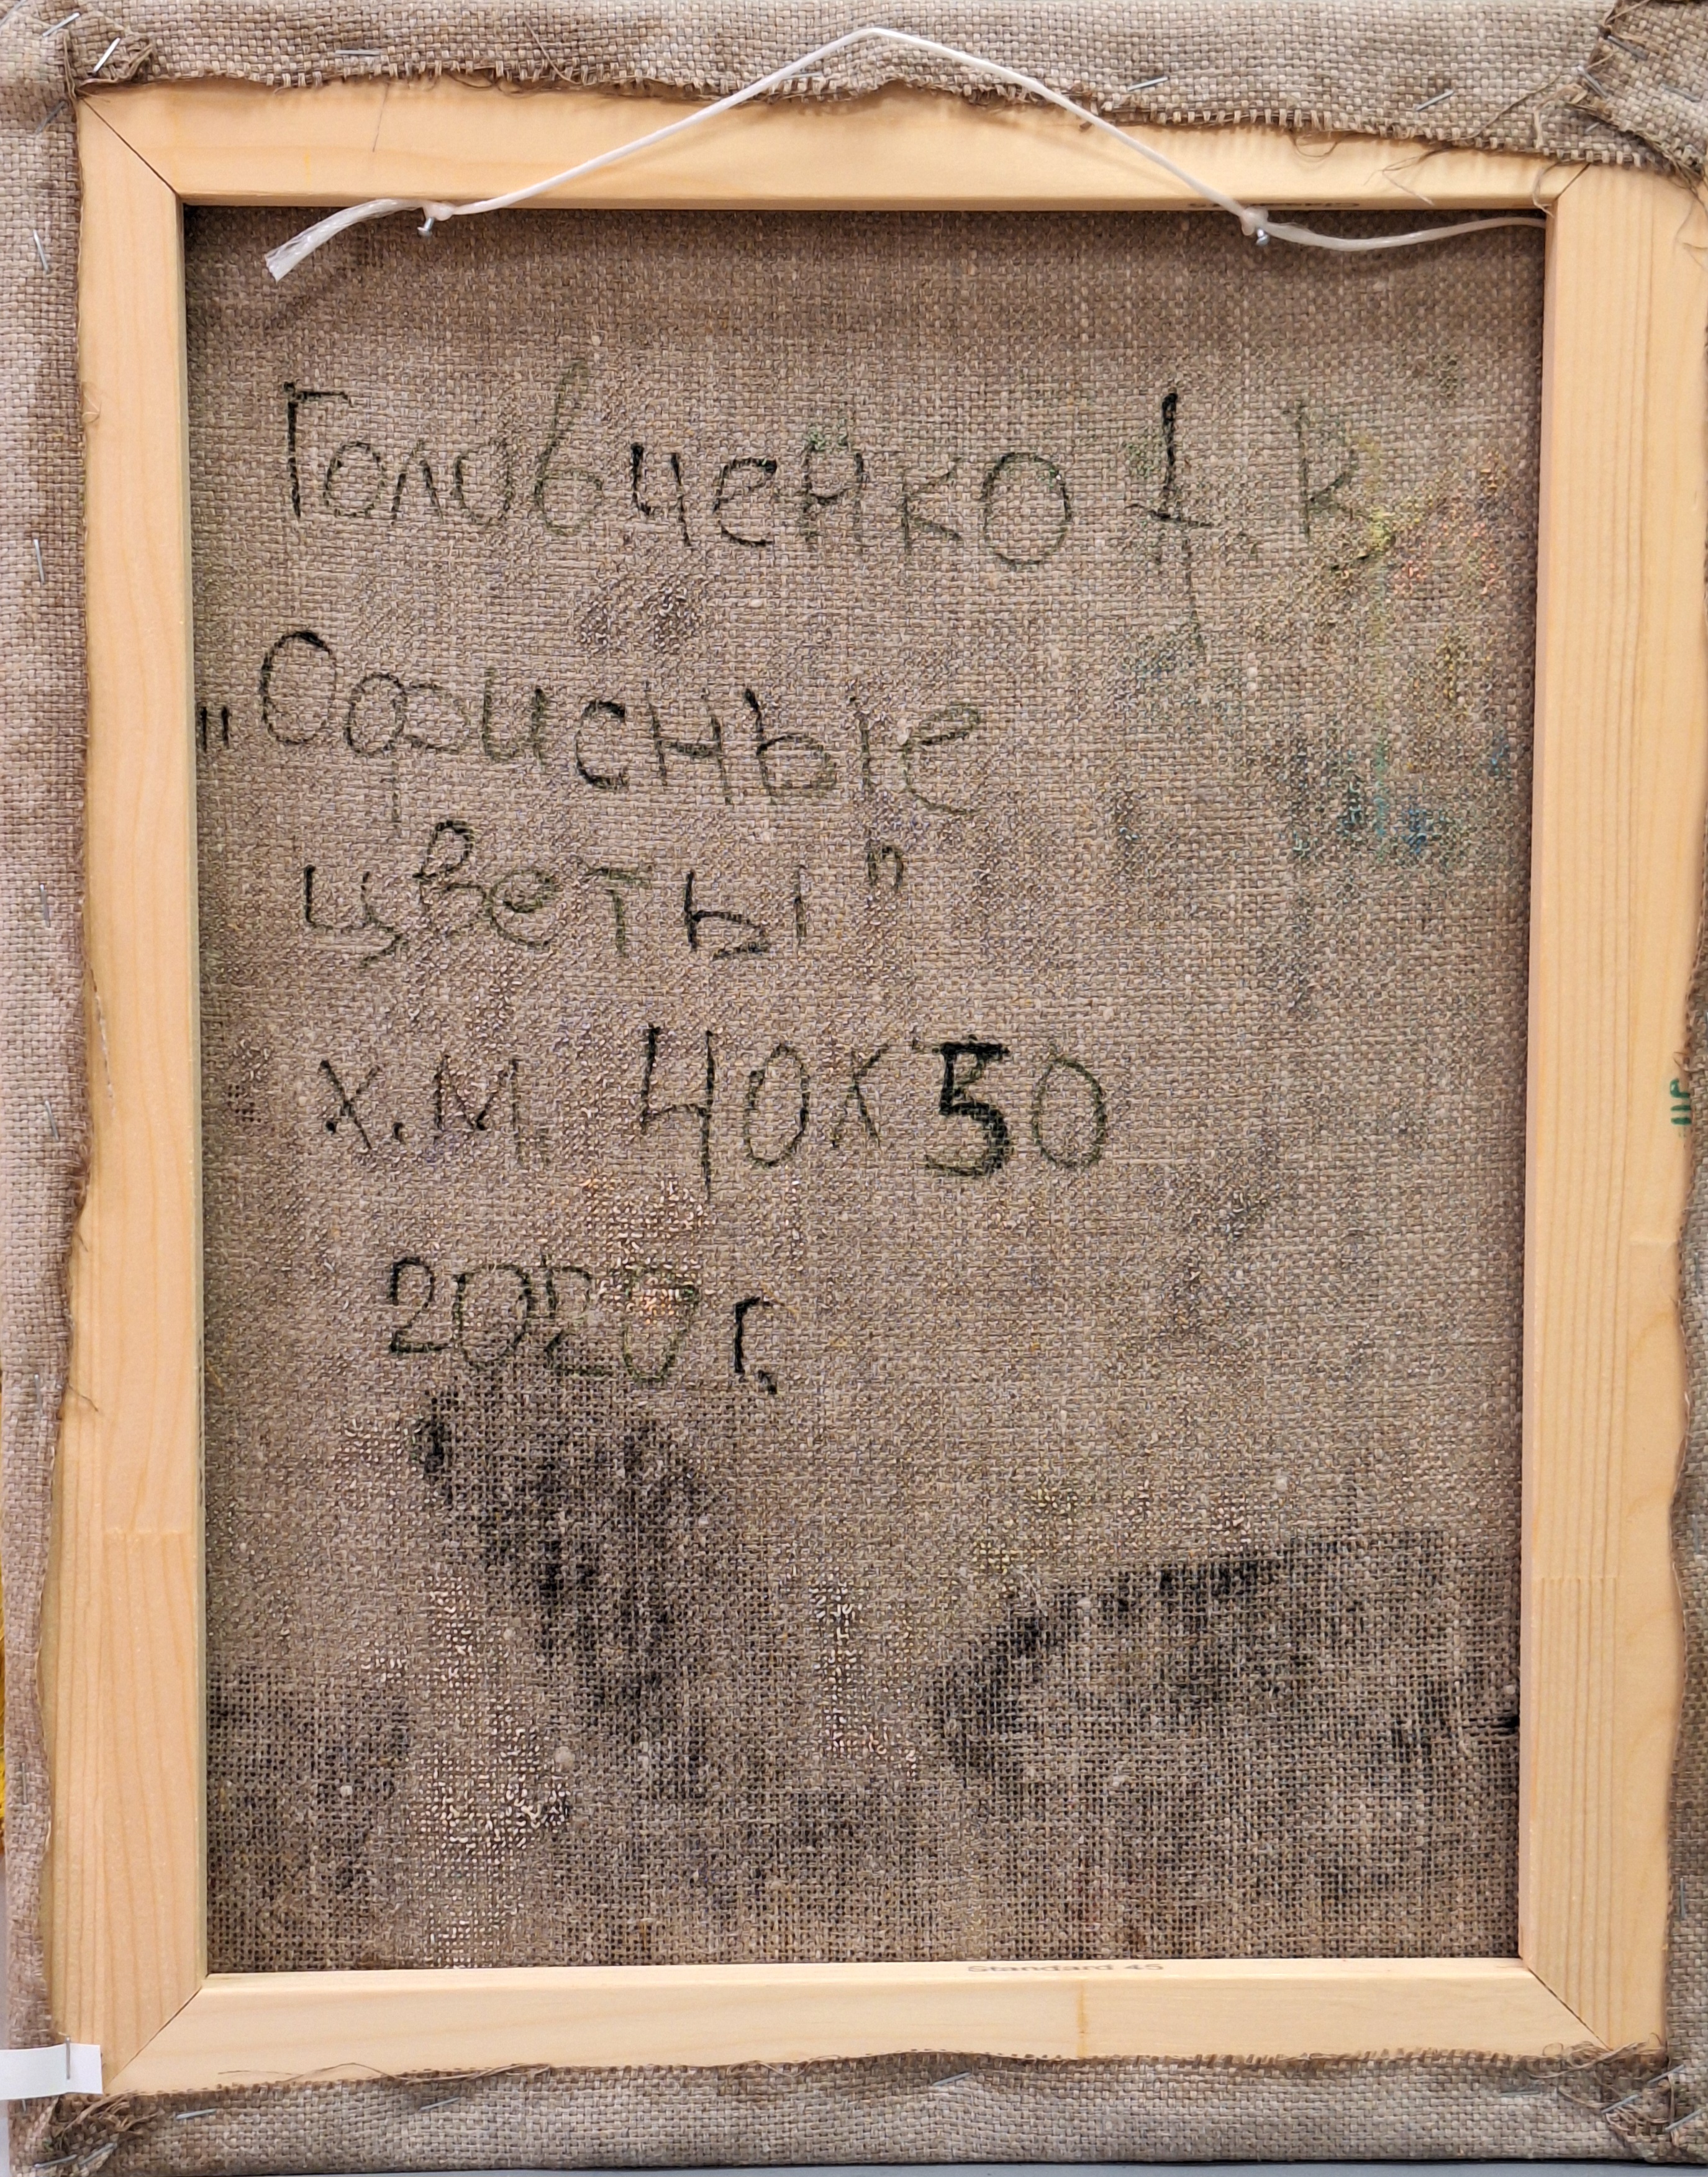 Головченко
"Офисные
цветы"
х.м 40х50
2020 г.
Standard 45